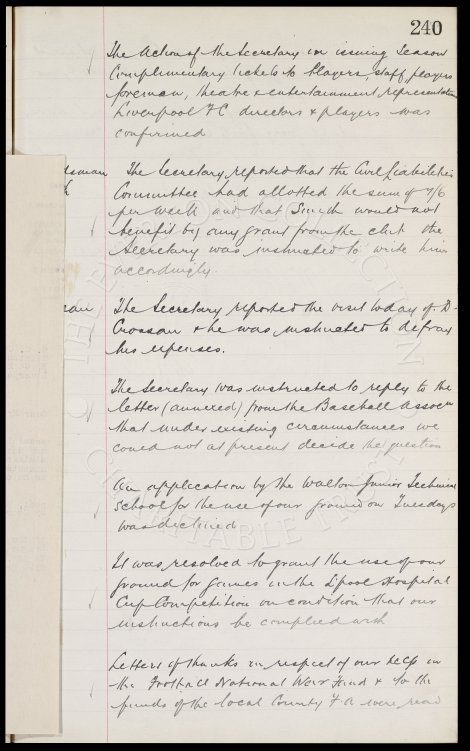 240
The Action of the Secretary in issuing Season
Complimentary tickets to Players, staff, players
foreman, theatre & entertainment representatives
Liverpool FC directors & players was
confirmed
dsman The Secretary reported that the Civil Liabilities
Committee had allotted the sum of 7/6
per week and that Smith would not
benefit by any grant from the club the
Secretary was instructed to write him
accordingly.
The Secretary reported the visit today of D-
Crossan & he was instructed to defray
his expenses.
The Secretary was instructed to reply to the
letter (annexed) from the Baseball Assocn
that under existing circumstances we
could not at present decide the question
An application by the Walton Junior Technical
School for the use of our ground on Tuesdays
was declined
It was resolved to grant the use of our
ground for games in the Lpool Hospital
Cup Competition on condition that our
instructions be complied with
Letters of thanks in respect of our help in
the Football National War Fund & to the
funds of the local County F A were read
THE EVERTON COLLECTION
CHARITABLE TRUST